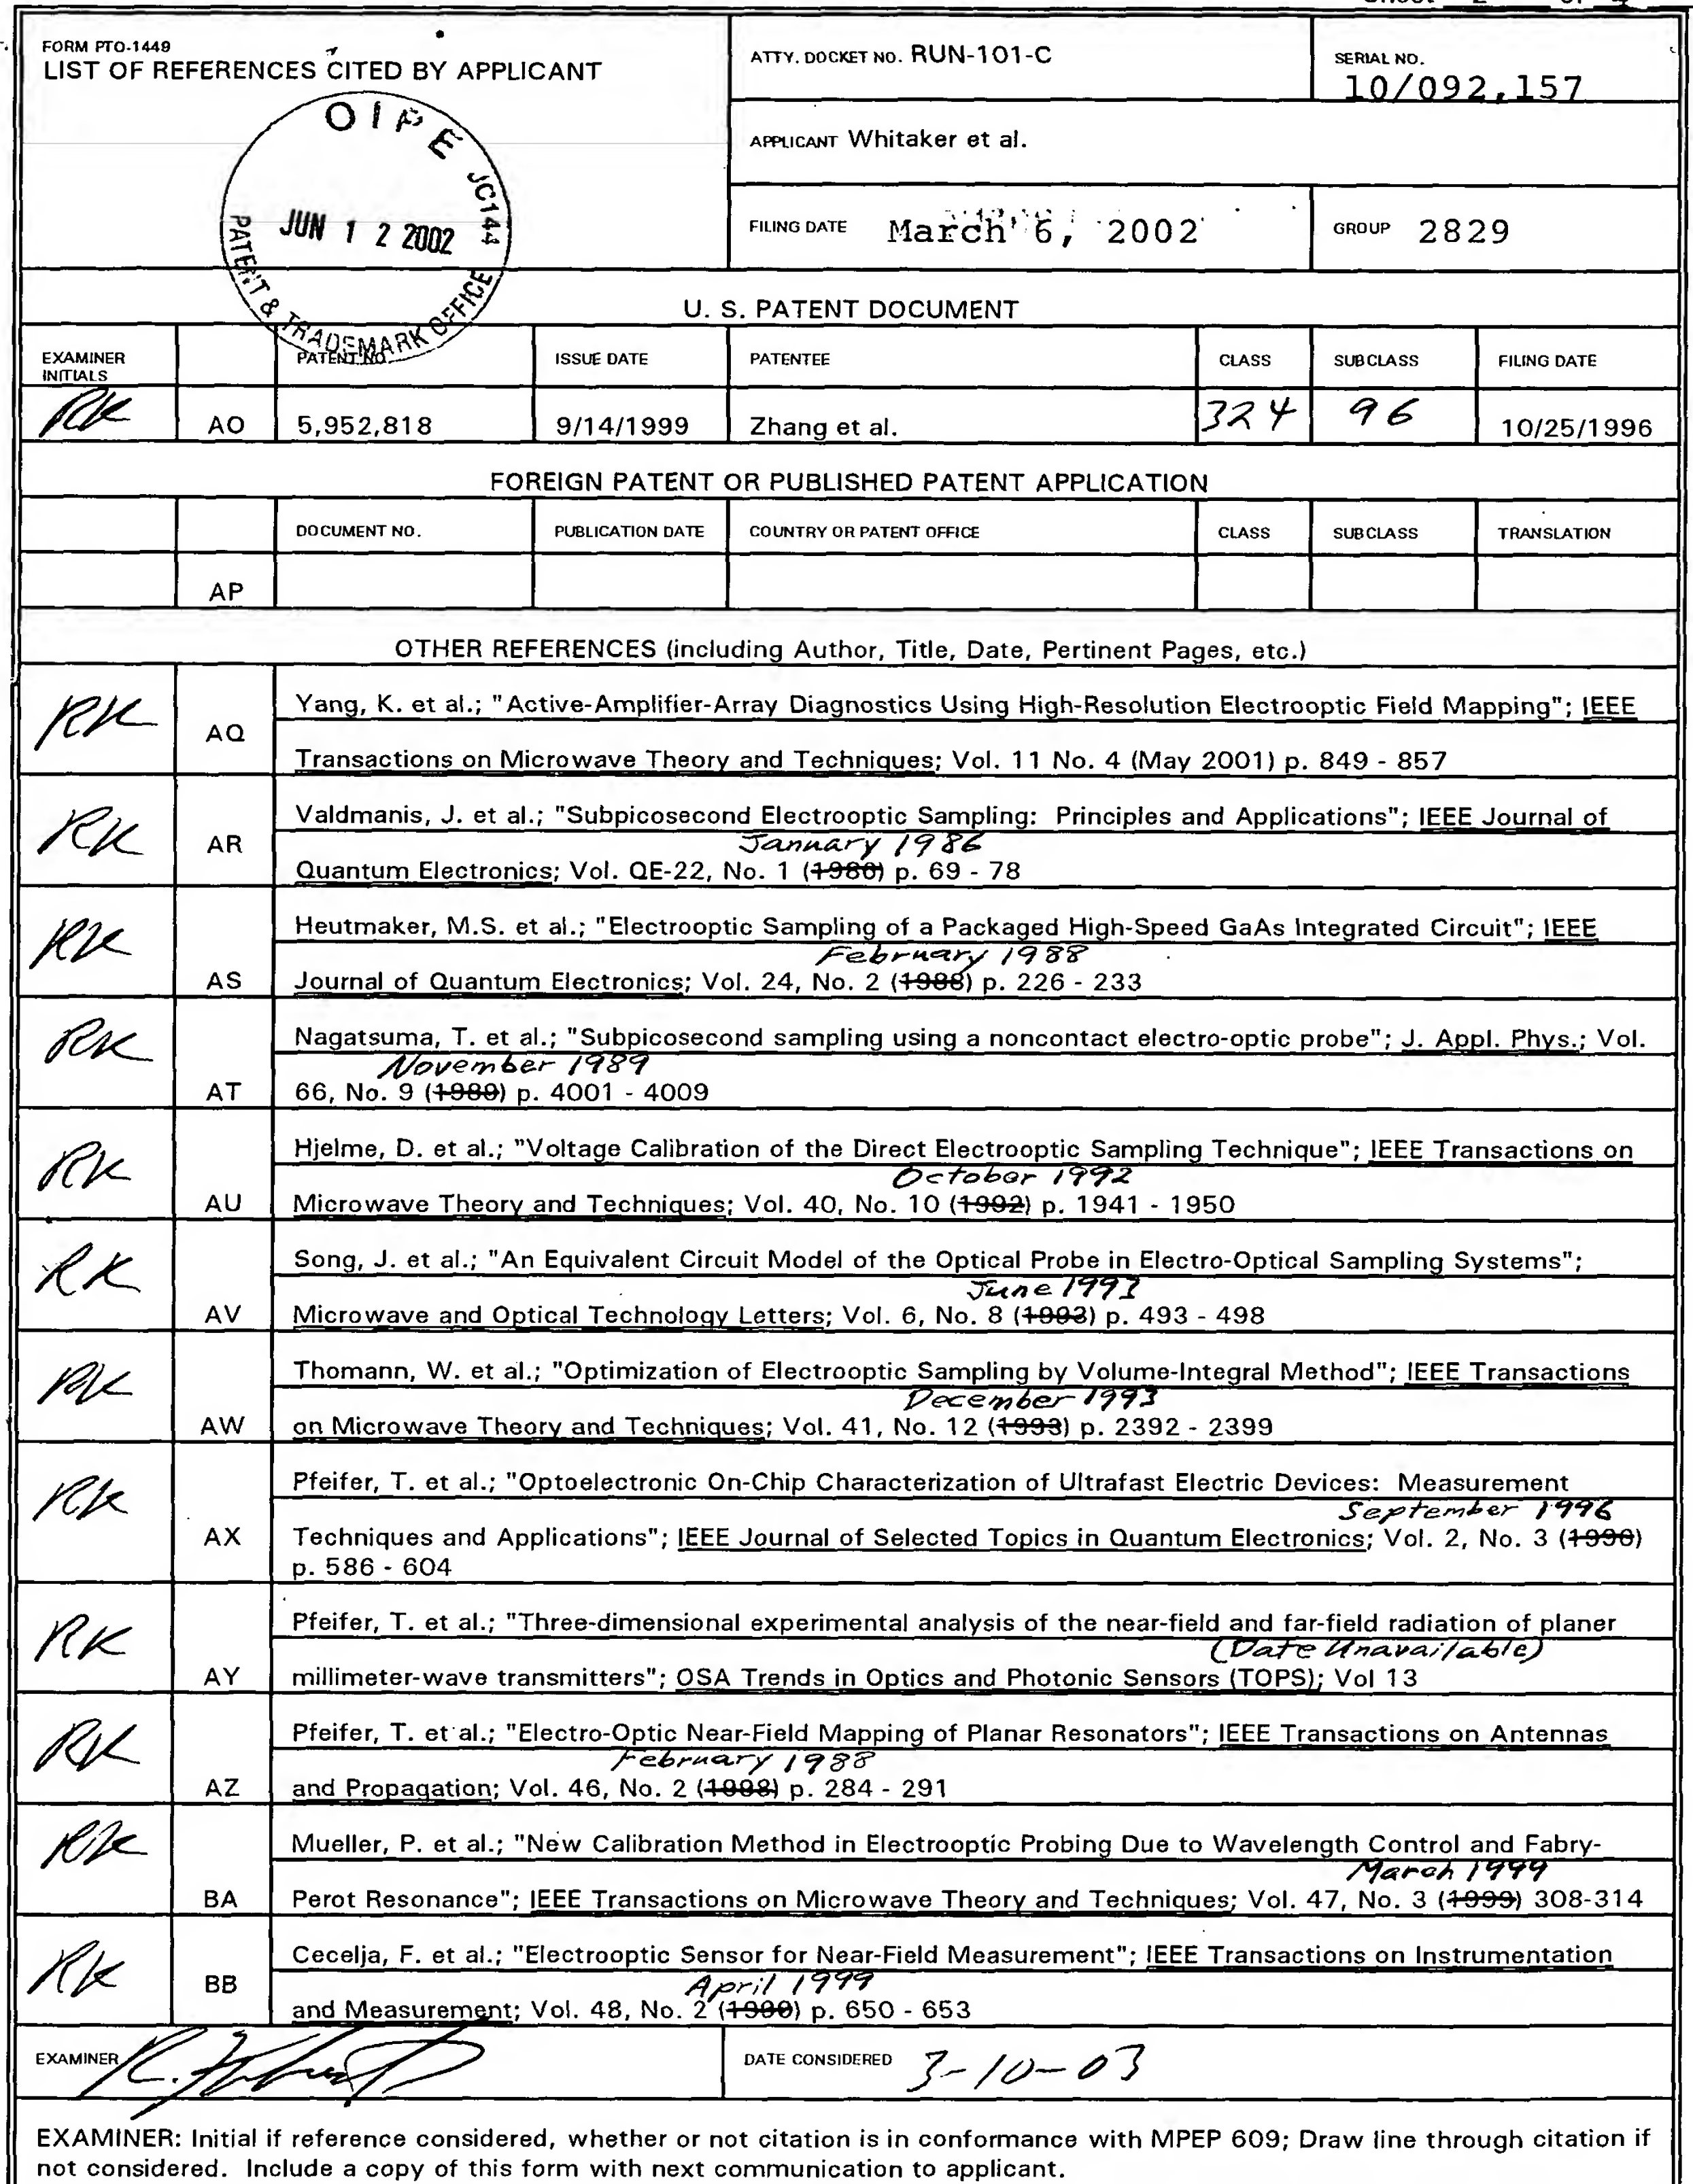 FORM PTO-1449
LIST OF REFERENCES CITED BY APPLICANT
ATTY. DOCKET NO. RUN-101-C
SERIAL NO.
10/092,157
APPLICANT Whitaker et al.
FILING DATE March 6, 2002
GROUP 2829
OIPE JC144
JUN 12 2002
PATENT & TRADEMARK OFFICE
U. S. PATENT DOCUMENT
EXAMINER INITIALS PATENT NO. ISSUE DATE PATENTEE CLASS SUBCLASS FILING DATE
RK AO 5,952,818 9/14/1999 Zhang et al. 324 96 10/25/1996
FOREIGN PATENT OR PUBLISHED PATENT APPLICATION
DOCUMENT NO. PUBLICATION DATE COUNTRY OR PATENT OFFICE CLASS SUBCLASS TRANSLATION
AP
OTHER REFERENCES (including Author, Title, Date, Pertinent Pages, etc.)
RK AQ Yang, K. et al.; "Active-Amplifier-Array Diagnostics Using High-Resolution Electrooptic Field Mapping"; IEEE
Transactions on Microwave Theory and Techniques; Vol. 11 No. 4 (May 2001) p. 849 - 857
RK AR Valdmanis, J. et al.; "Subpicosecond Electrooptic Sampling: Principles and Applications"; IEEE Journal of
January 1986
Quantum Electronics; Vol. QE-22, No. 1 (1986) p. 69 - 78
RK AS Heutmaker, M.S. et al.; "Electrooptic Sampling of a Packaged High-Speed GaAs Integrated Circuit"; IEEE
February 1988
Journal of Quantum Electronics; Vol. 24, No. 2 (1988) p. 226 - 233
RK AT Nagatsuma, T. et al.; "Subpicosecond sampling using a noncontact electro-optic probe"; J. Appl. Phys.; Vol.
November 1989
66, No. 9 (1989) p. 4001 - 4009
RK AU Hjelme, D. et al.; "Voltage Calibration of the Direct Electrooptic Sampling Technique"; IEEE Transactions on
October 1992
Microwave Theory and Techniques; Vol. 40, No. 10 (1992) p. 1941 - 1950
RK AV Song, J. et al.; "An Equivalent Circuit Model of the Optical Probe in Electro-Optical Sampling Systems";
June 1993
Microwave and Optical Technology Letters; Vol. 6, No. 8 (1993) p. 493 - 498
RK AW Thomann, W. et al.; "Optimization of Electrooptic Sampling by Volume-Integral Method"; IEEE Transactions
December 1993
on Microwave Theory and Techniques; Vol. 41, No. 12 (1993) p. 2392 - 2399
RK AX Pfeifer, T. et al.; "Optoelectronic On-Chip Characterization of Ultrafast Electric Devices: Measurement
September 1996
Techniques and Applications"; IEEE Journal of Selected Topics in Quantum Electronics; Vol. 2, No. 3 (1996)
p. 586 - 604
RK AY Pfeifer, T. et al.; "Three-dimensional experimental analysis of the near-field and far-field radiation of planer
(Date Unavailable)
millimeter-wave transmitters"; OSA Trends in Optics and Photonic Sensors (TOPS); Vol 13
RK AZ Pfeifer, T. et al.; "Electro-Optic Near-Field Mapping of Planar Resonators"; IEEE Transactions on Antennas
February 1988
and Propagation; Vol. 46, No. 2 (1998) p. 284 - 291
RK BA Mueller, P. et al.; "New Calibration Method in Electrooptic Probing Due to Wavelength Control and Fabry-
March 1999
Perot Resonance"; IEEE Transactions on Microwave Theory and Techniques; Vol. 47, No. 3 (1999) 308-314
RK BB Cecelja, F. et al.; "Electrooptic Sensor for Near-Field Measurement"; IEEE Transactions on Instrumentation
April 1999
and Measurement; Vol. 48, No. 2 (1999) p. 650 - 653
EXAMINER
DATE CONSIDERED 3-10-03
EXAMINER: Initial if reference considered, whether or not citation is in conformance with MPEP 609; Draw line through citation if
not considered. Include a copy of this form with next communication to applicant.